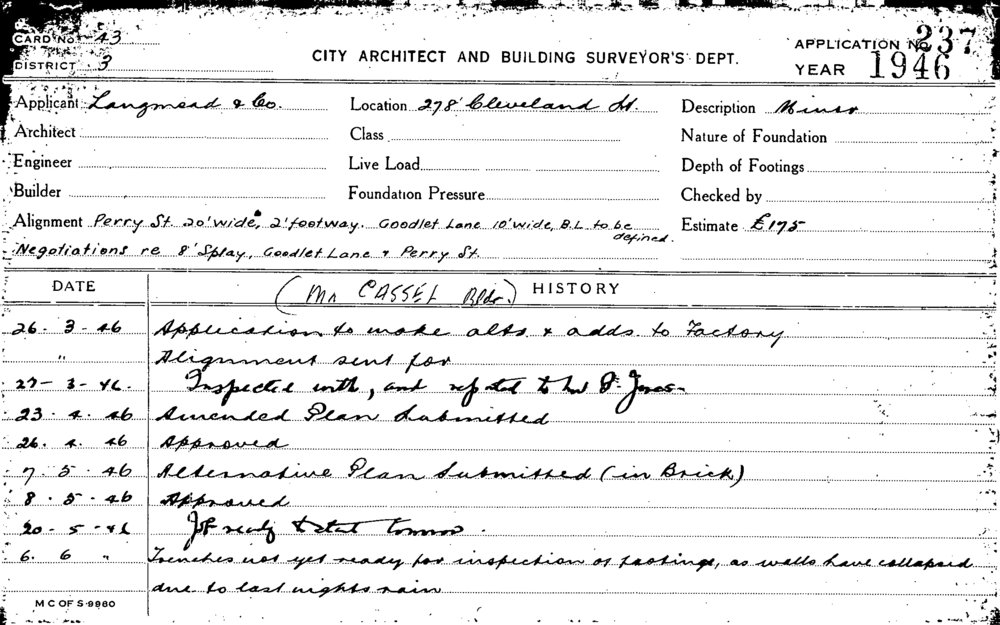 CARD No. 43
DISTRICT 3
CITY ARCHITECT AND BUILDING SURVEYOR'S DEPT.
APPLICATION No. 237
YEAR 1946
Applicant Langmead & Co. Location 278 Cleveland St. Description Minor
Architect Class Nature of Foundation
Engineer Live Load Depth of Footings
Builder Foundation Pressure Checked by
Alignment Perry St. 20' wide, 2' footway. Goodlet Lane 10' wide, B.L. to be defined. Estimate £175
Negotiations re 8' Splay, Goodlet Lane & Perry St.
DATE (Mr CASSEL Bldr.) HISTORY
26. 3. 46 Application to make alts. & adds. to Factory
" Alignment sent for
27-3-46. Inspected with, and reported to
23. 4. 46 Amended Plan Submitted
26. 4. 46 Approved
7. 5. 46 Alternative Plan Submitted (in Brick)
8. 5. 46 Approved
20-5-46 Job ready to start
6. 6 " Trenches not yet ready for inspection of footings, as walls have collapsed
due to last nights rain
M C OF S-9960